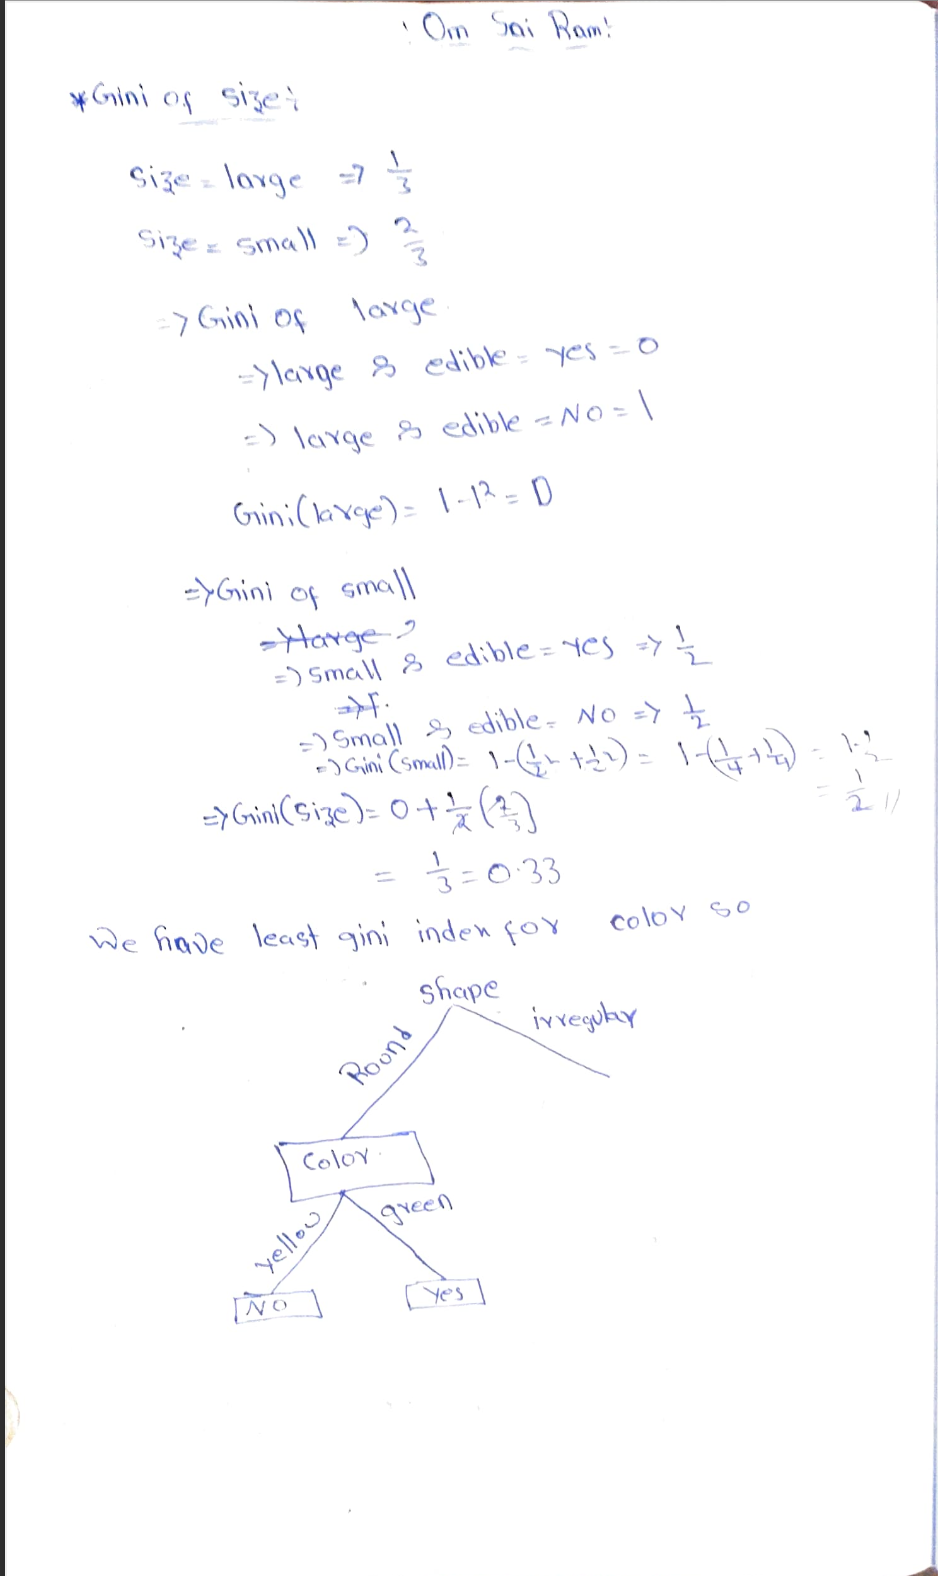 ! Om Sai Ram!
* Gini of size:
Size = large => 1/3
Size = small => 2/3
=> Gini of large
=> large & edible = yes = 0
=> large & edible = NO = 1
Gini(large) = 1-1² = 0
=> Gini of small
=> large &
=> small & edible = Yes => 1/2
=> small & edible = NO => 1/2
=> Gini(small) = 1-(1/2² + 1/2²) = 1-(1/4 + 1/4) = 1-1/2
= 1/2 //
=> Gini(size) = 0 + 1/2 (2/3)
= 1/3 = 0.33
We have least gini index for color so
shape
Round
irregular
Color.
yellow
green
NO
Yes